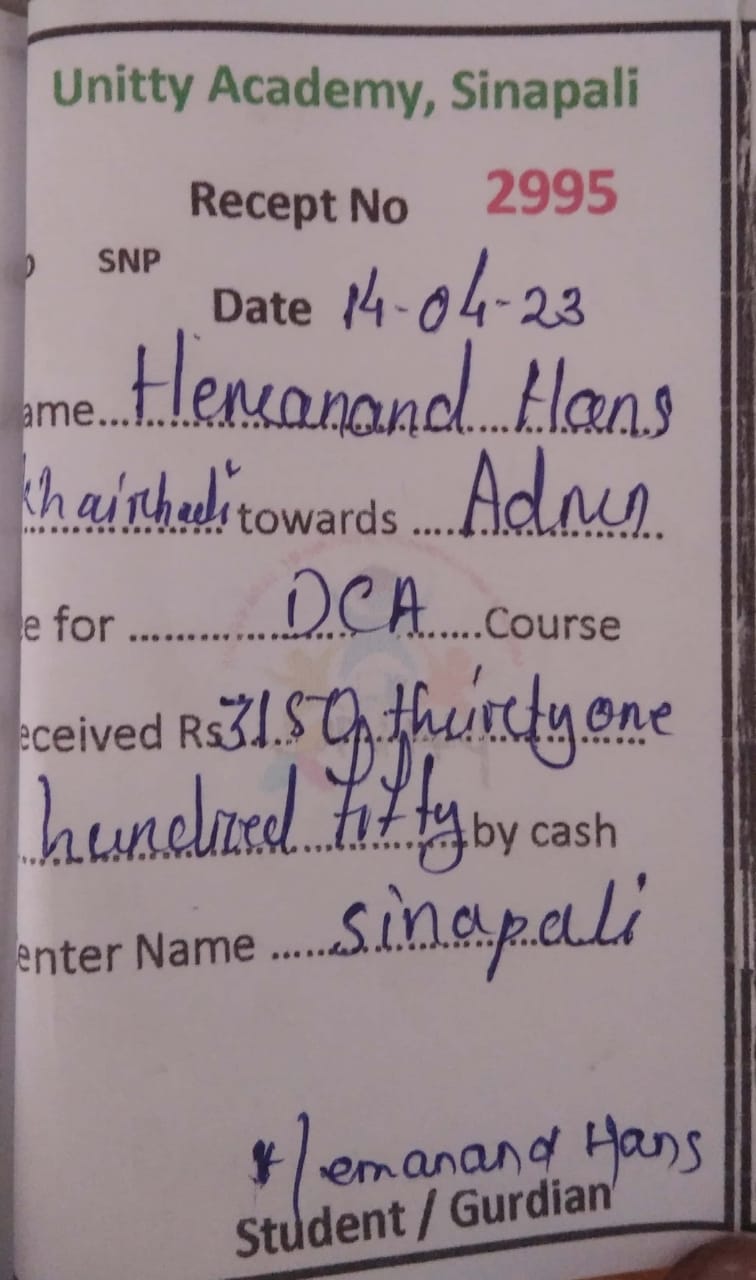 Unitty Academy, Sinapali
Recept No 2995
SNP
Date 14-04-23
ame... Hemanand Hans
towards .... Admn
e for ............... DCA ......Course
eceived Rs 3150/ thirty one
hundred fifty by cash
enter Name ...... sinapali
Hemanand Hans
Student / Gurdian